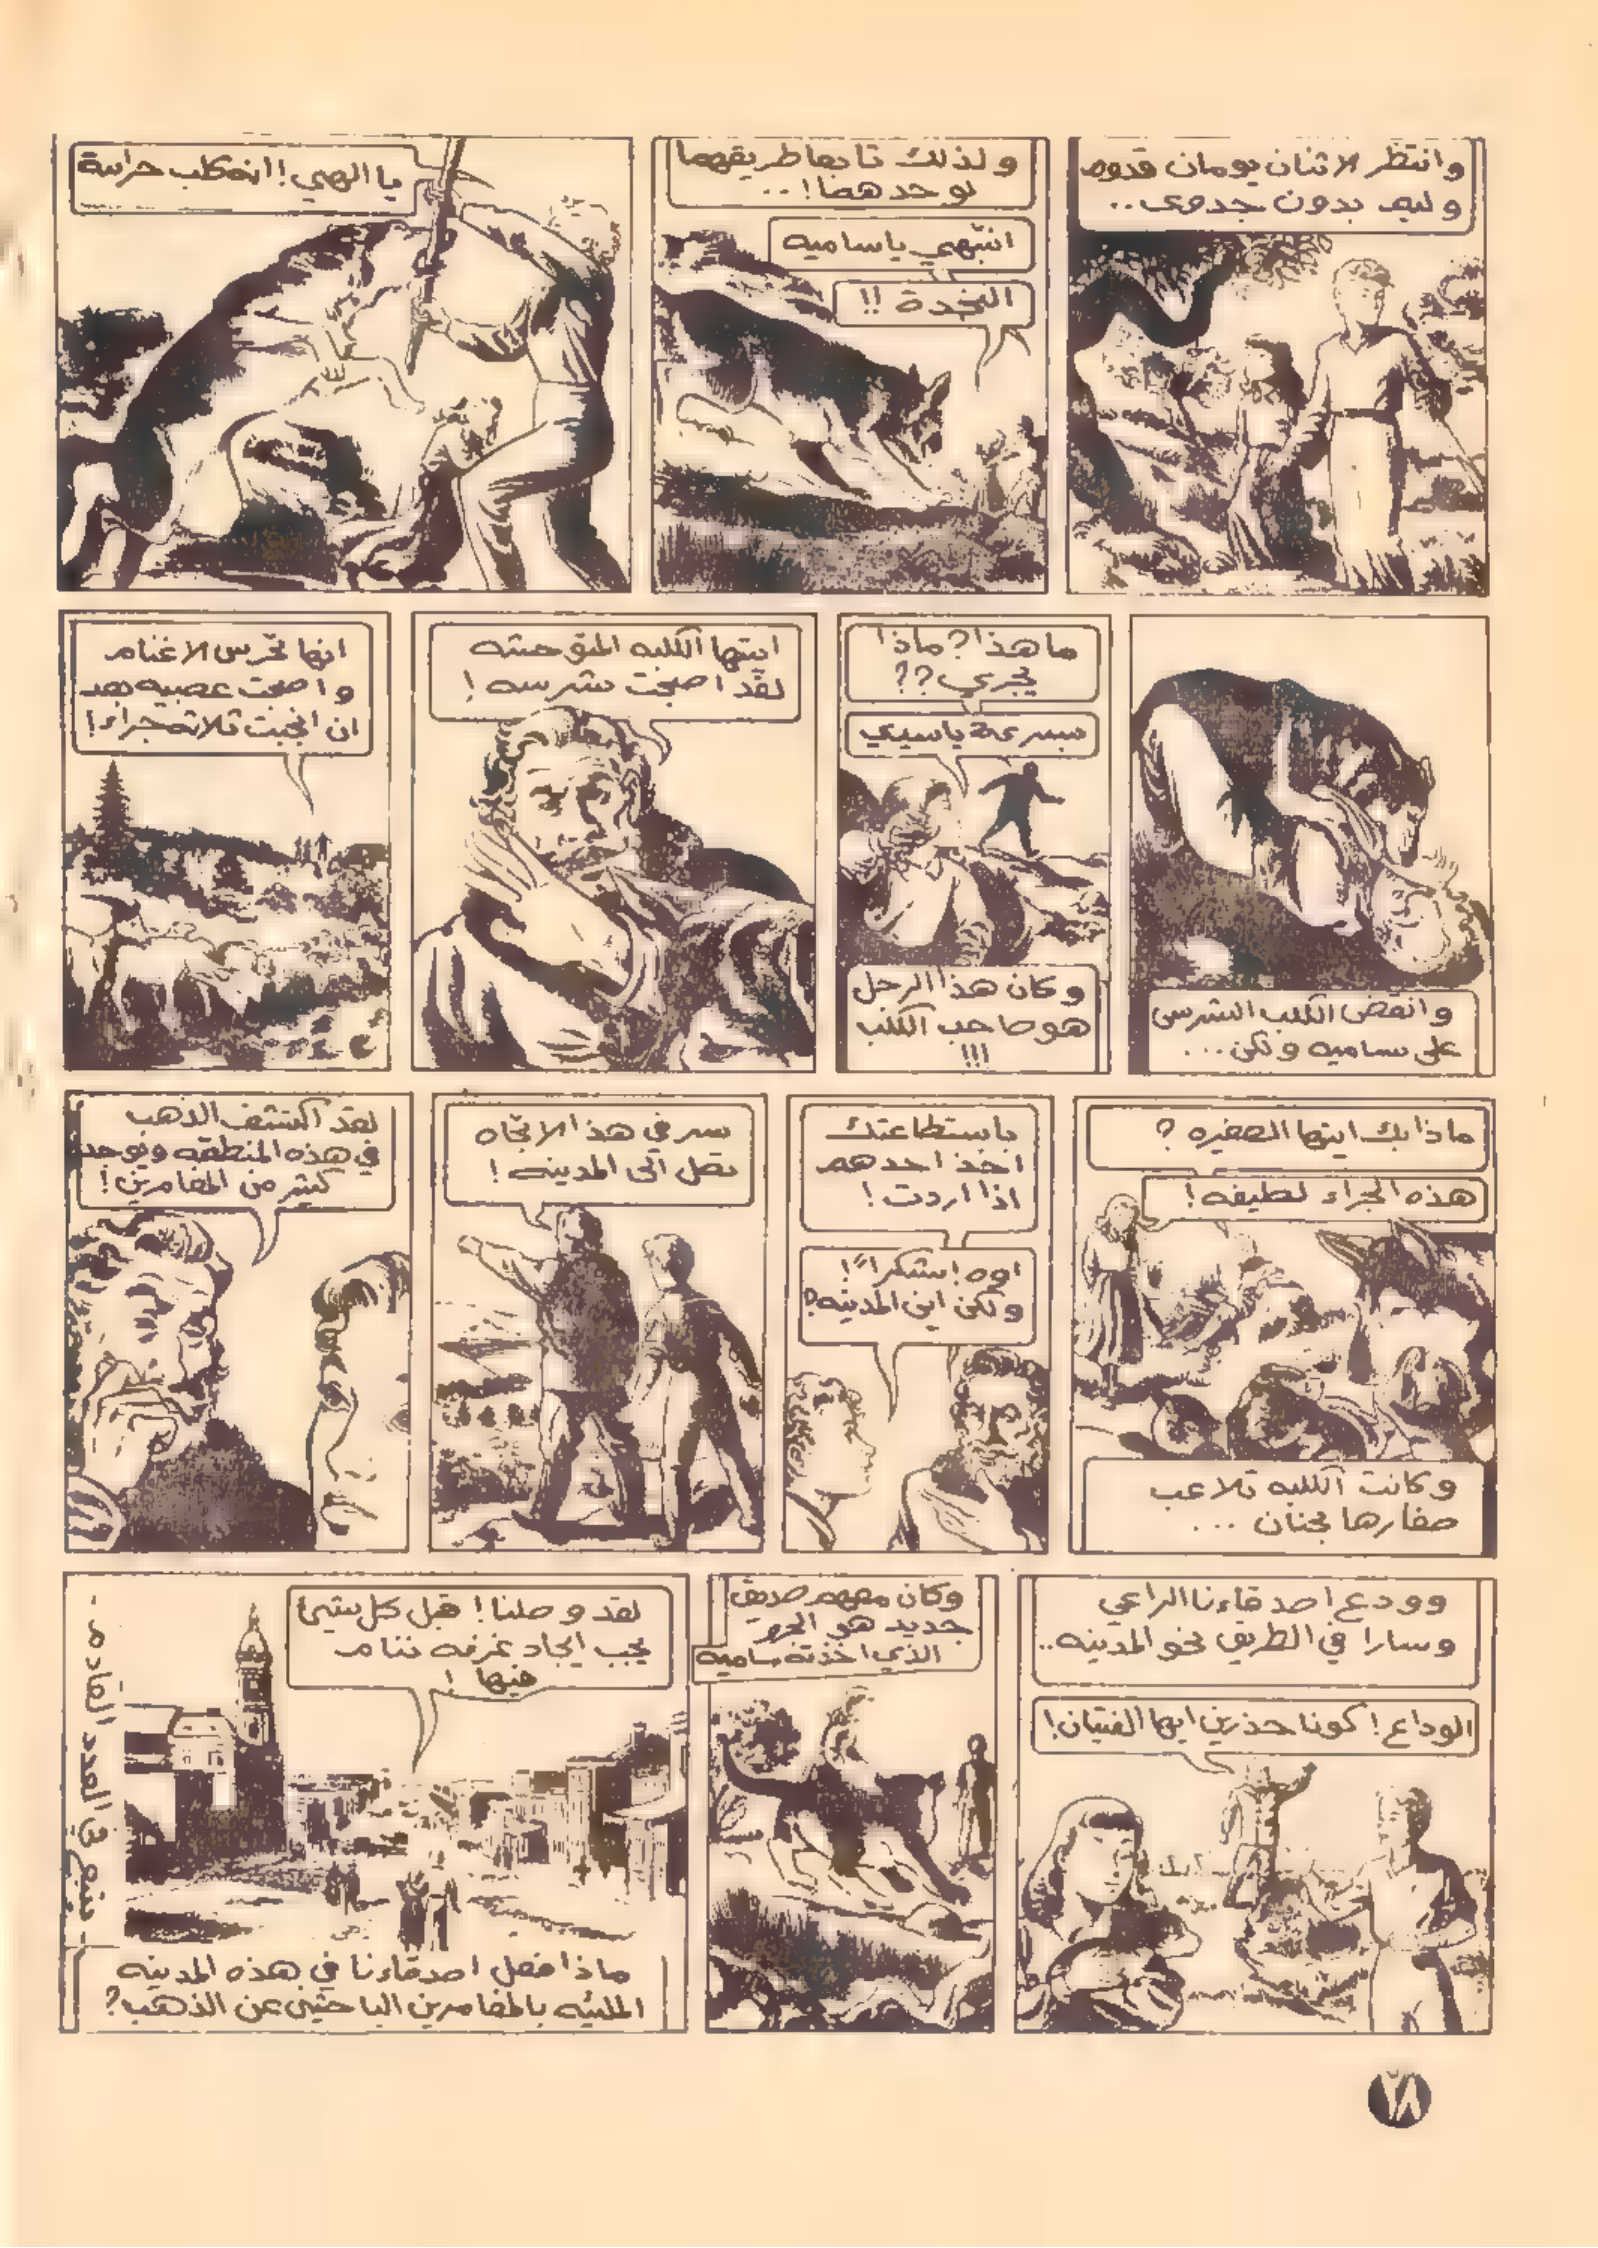 وانتظر الاثنان يومان قدوم
وليم بدون جدوى..
ولذلك تابعا طريقهما
لوحدهما!..
انتبهي ياساميه
النجدة !!
يا الهي! انه كلب حراسة
وانقض الكلب الشرس
على ساميه ولكن...
ما هذا؟ ماذا
يجري؟؟
بسرعة ياسيدي
وكان هذا الرجل
هو صاحب الكلب
!!!
ايتها الكلبه المتوحشه
لقد اصبحت شرسه !
انها تحرس الاغنام
واصبحت عصبيه بعد
ان انجبت ثلاثه جراء!
ماذا بك ايتها الصغيره ؟
هذه الجراء لطيفه!
وكانت الكلبه تلاعب
صغارها بحنان ...
باستطاعتك
اخذ احدهم
اذا اردت !
اوه! شكراً!
ولكن اين المدينه؟
سر في هذا الاتجاه
تصل الى المدينه !
لقد اكتشف الذهب
في هذه المنطقه ويوجد
كثير من المغامرين!
وودع اصدقاءنا الراعي
وسارا في الطريق نحو المدينه..
الوداع! كونا حذرين ايها الفتيان!
وكان معهم صديق
جديد هو الجرو
الذي اخذته ساميه
لقد وصلنا! قبل كل شيئ
يجب ايجاد غرفه ننام
فيها !
ماذا فعل اصدقاءنا في هذه المدينه
المليئه بالمغامرين الباحثين عن الذهب؟
- يتبع في العدد القادم -
٧٨